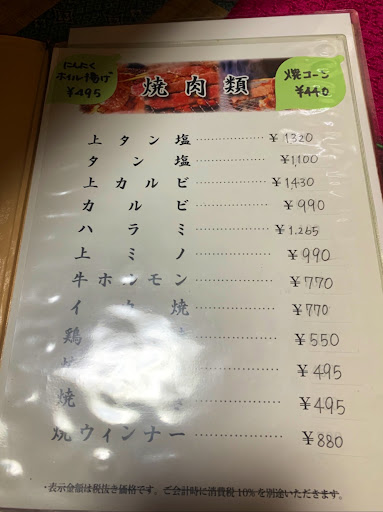 にんにく
ホイル揚げ
¥495
焼肉類
焼コーン
¥440
上タン塩 ¥1320
タン塩 ¥1,100
上カルビ ¥1430
カルビ ¥990
ハラミ ¥1.265
上ミノ ¥990
牛ホルモン ¥770
イカ焼 ¥770
鶏 ¥550
¥495
焼 ¥495
焼ウィンナー ¥880
・表示金額は税抜き価格です。ご会計時に消費税10%を別途いただきます。